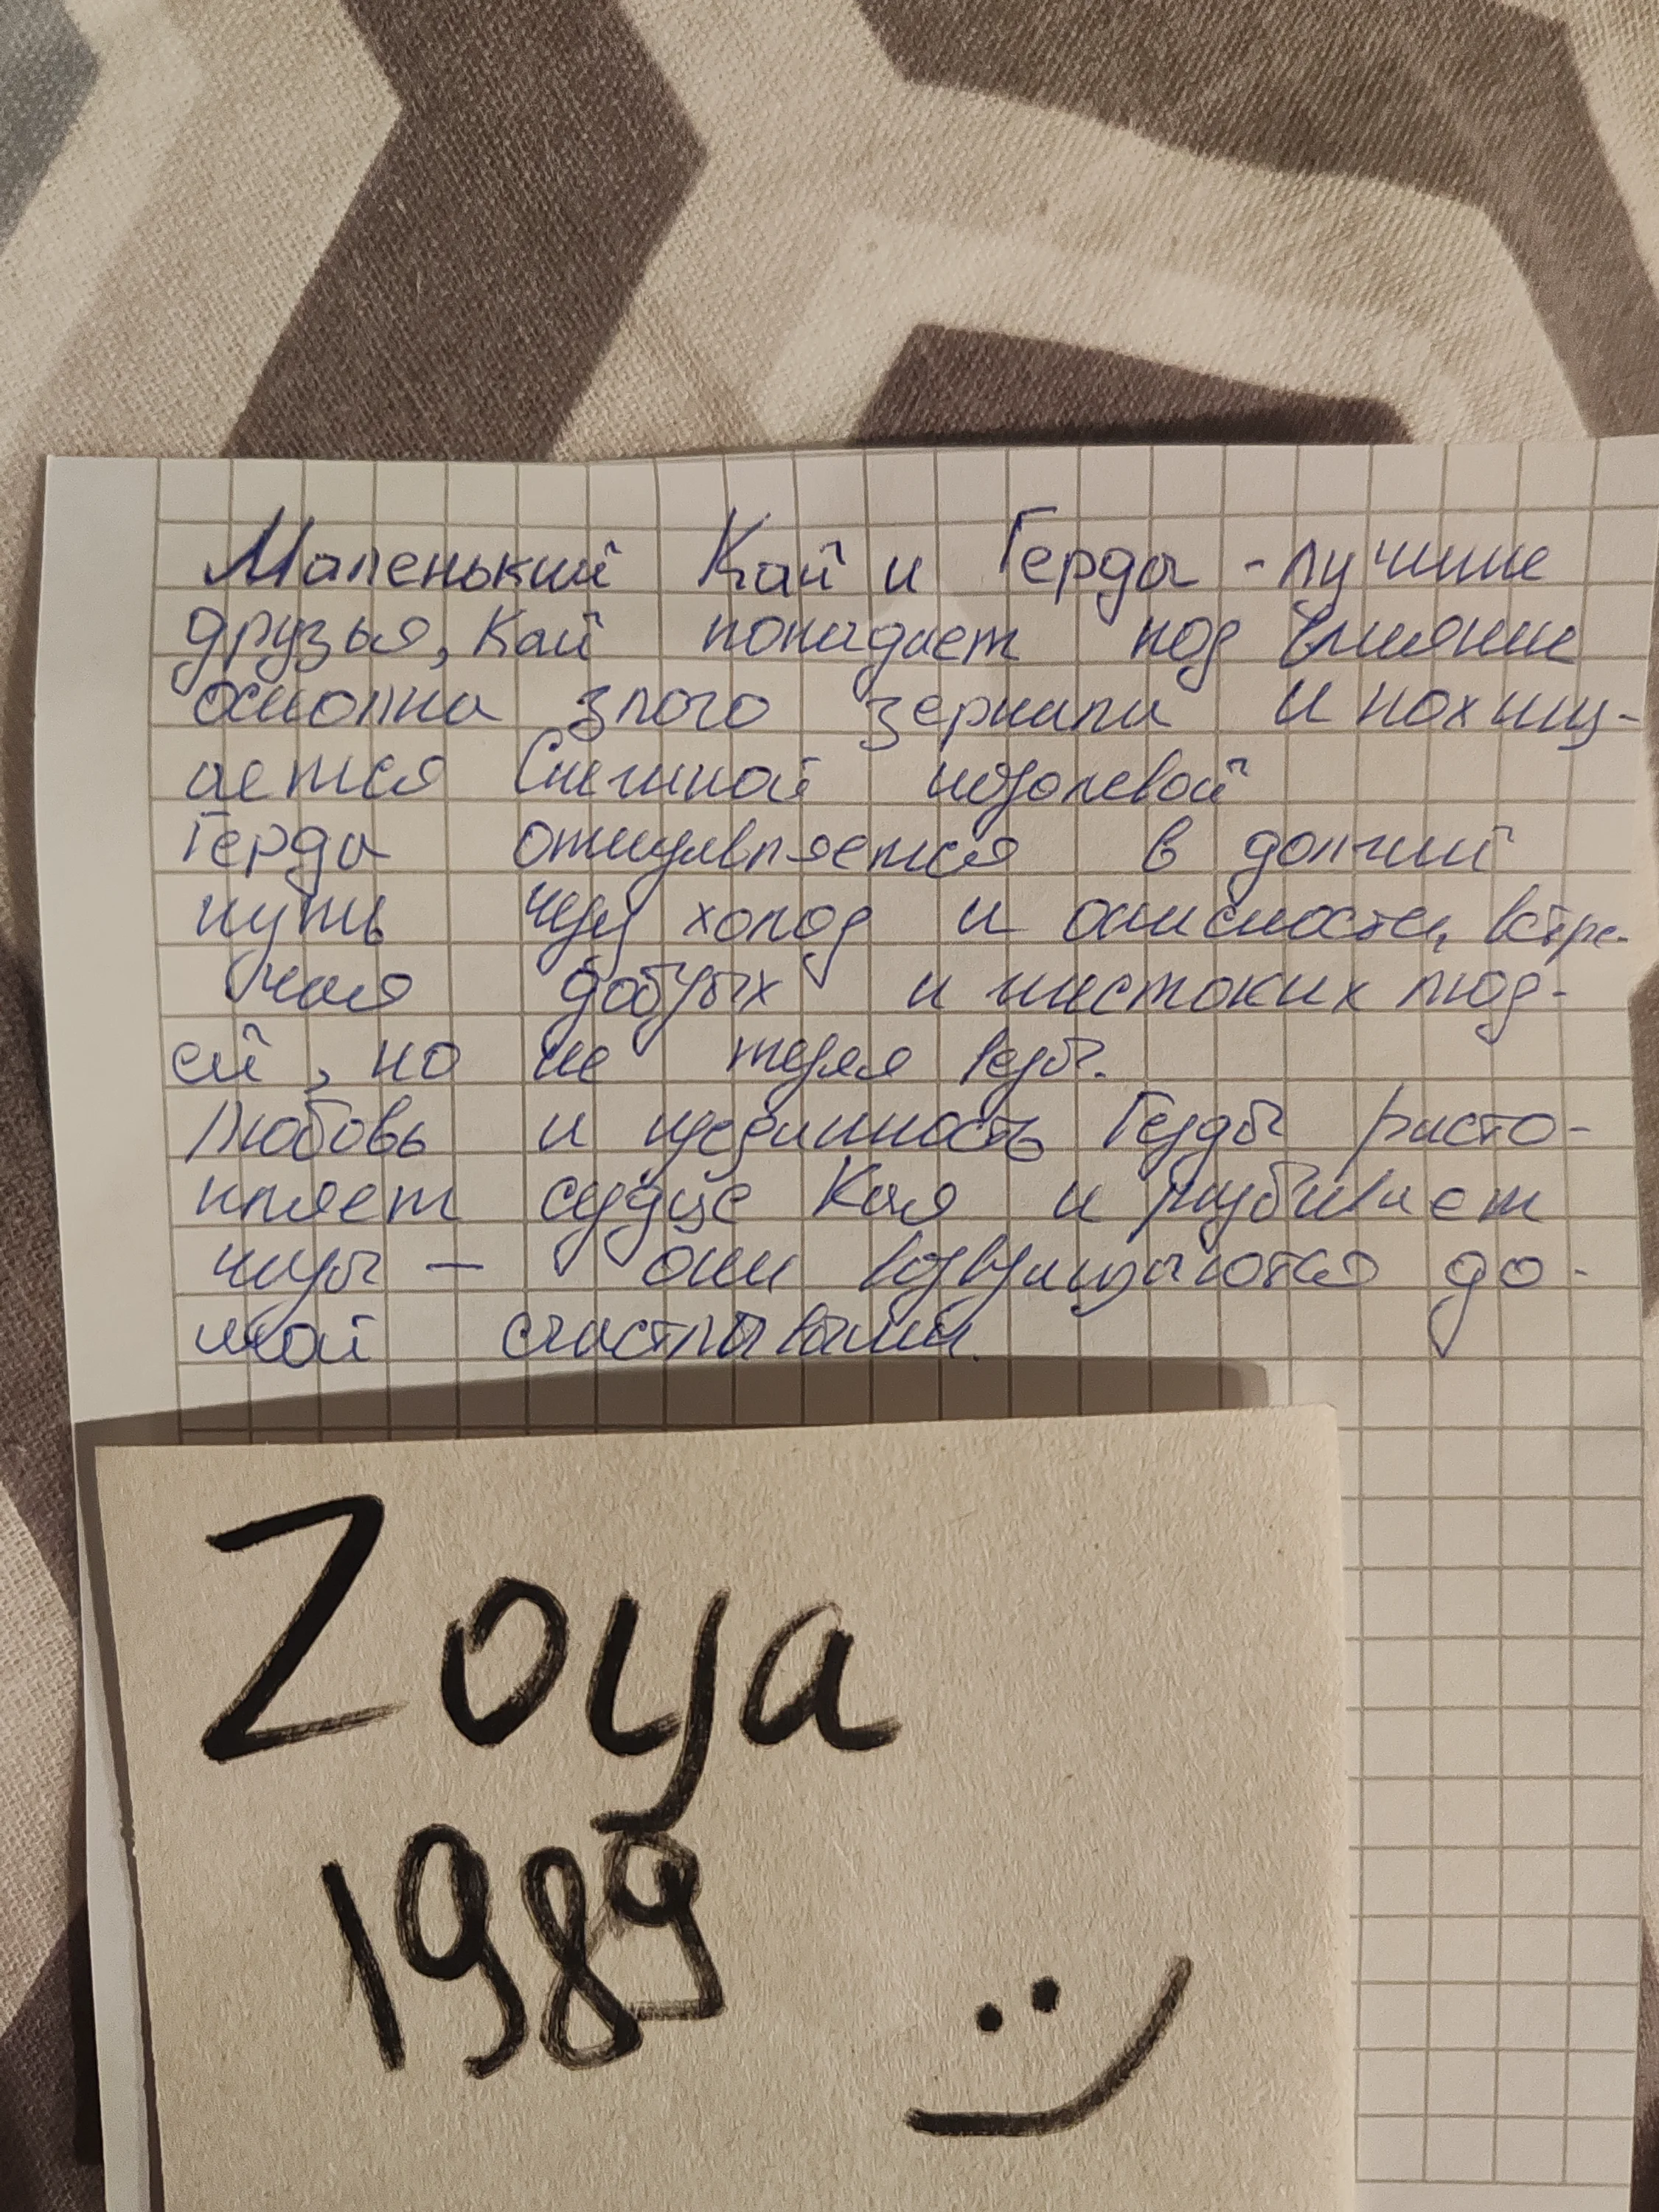 Маленький Кай и Герда - лучшие
друзья, Кай попадает под влияние
осколка злого зеркала и похищ-
ается Снежной королевой
Герда отправляется в долгий
путь через холод и опасности, встре-
чая добрых и жестоких люд-
ей, но не теряя веры.
Любовь и преданность Герды расто-
пляет сердце Кая и разбивает
чары — они возвращаются до-
мой счастливыми.
Zoya
1989
:)